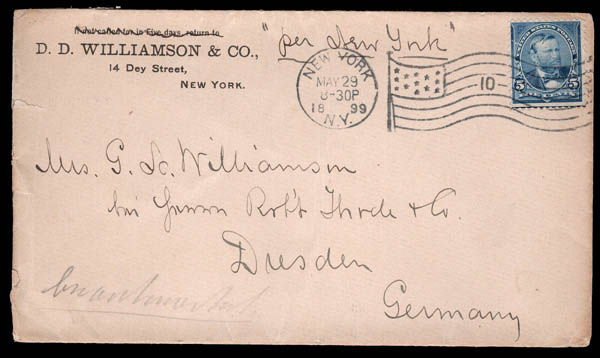 If not called for in Five days, return to
D. D. WILLIAMSON & CO.,
14 Dey Street,
NEW YORK.
"per New York"
NEW YORK
MAY 29
8-30P
18 99
N.Y.
10
5 5
Mrs. G. Sc. Williamson
bei Herren Rob't Thode & Co.
Dresden
Germany